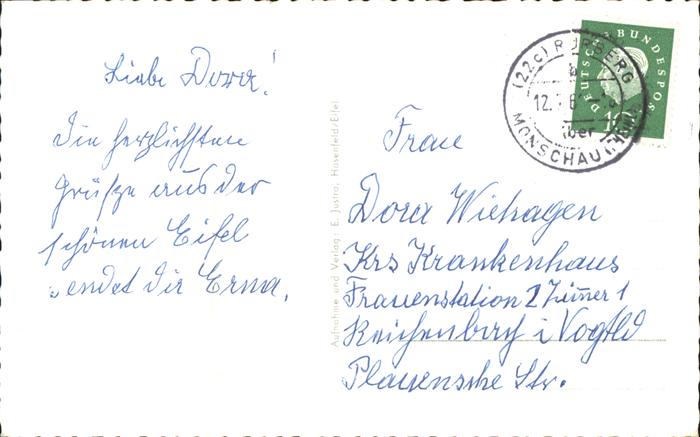 Liebe Dora!
Die herzlichsten
Grüße aus der
schönen Eifel
sendet dir Erna.
Aufnahme und Verlag: E. Justra, Hasenfeld/Eifel
DEUTSCHE BUNDESPOST
10
(22c) RURBERG
b
12.
über
MONSCHAU
Frau
Dora Wiehagen
Krs Krankenhaus
Frauenstation 2 Zimer 1
Reichenbach i Vogtld
Plauensche Str.